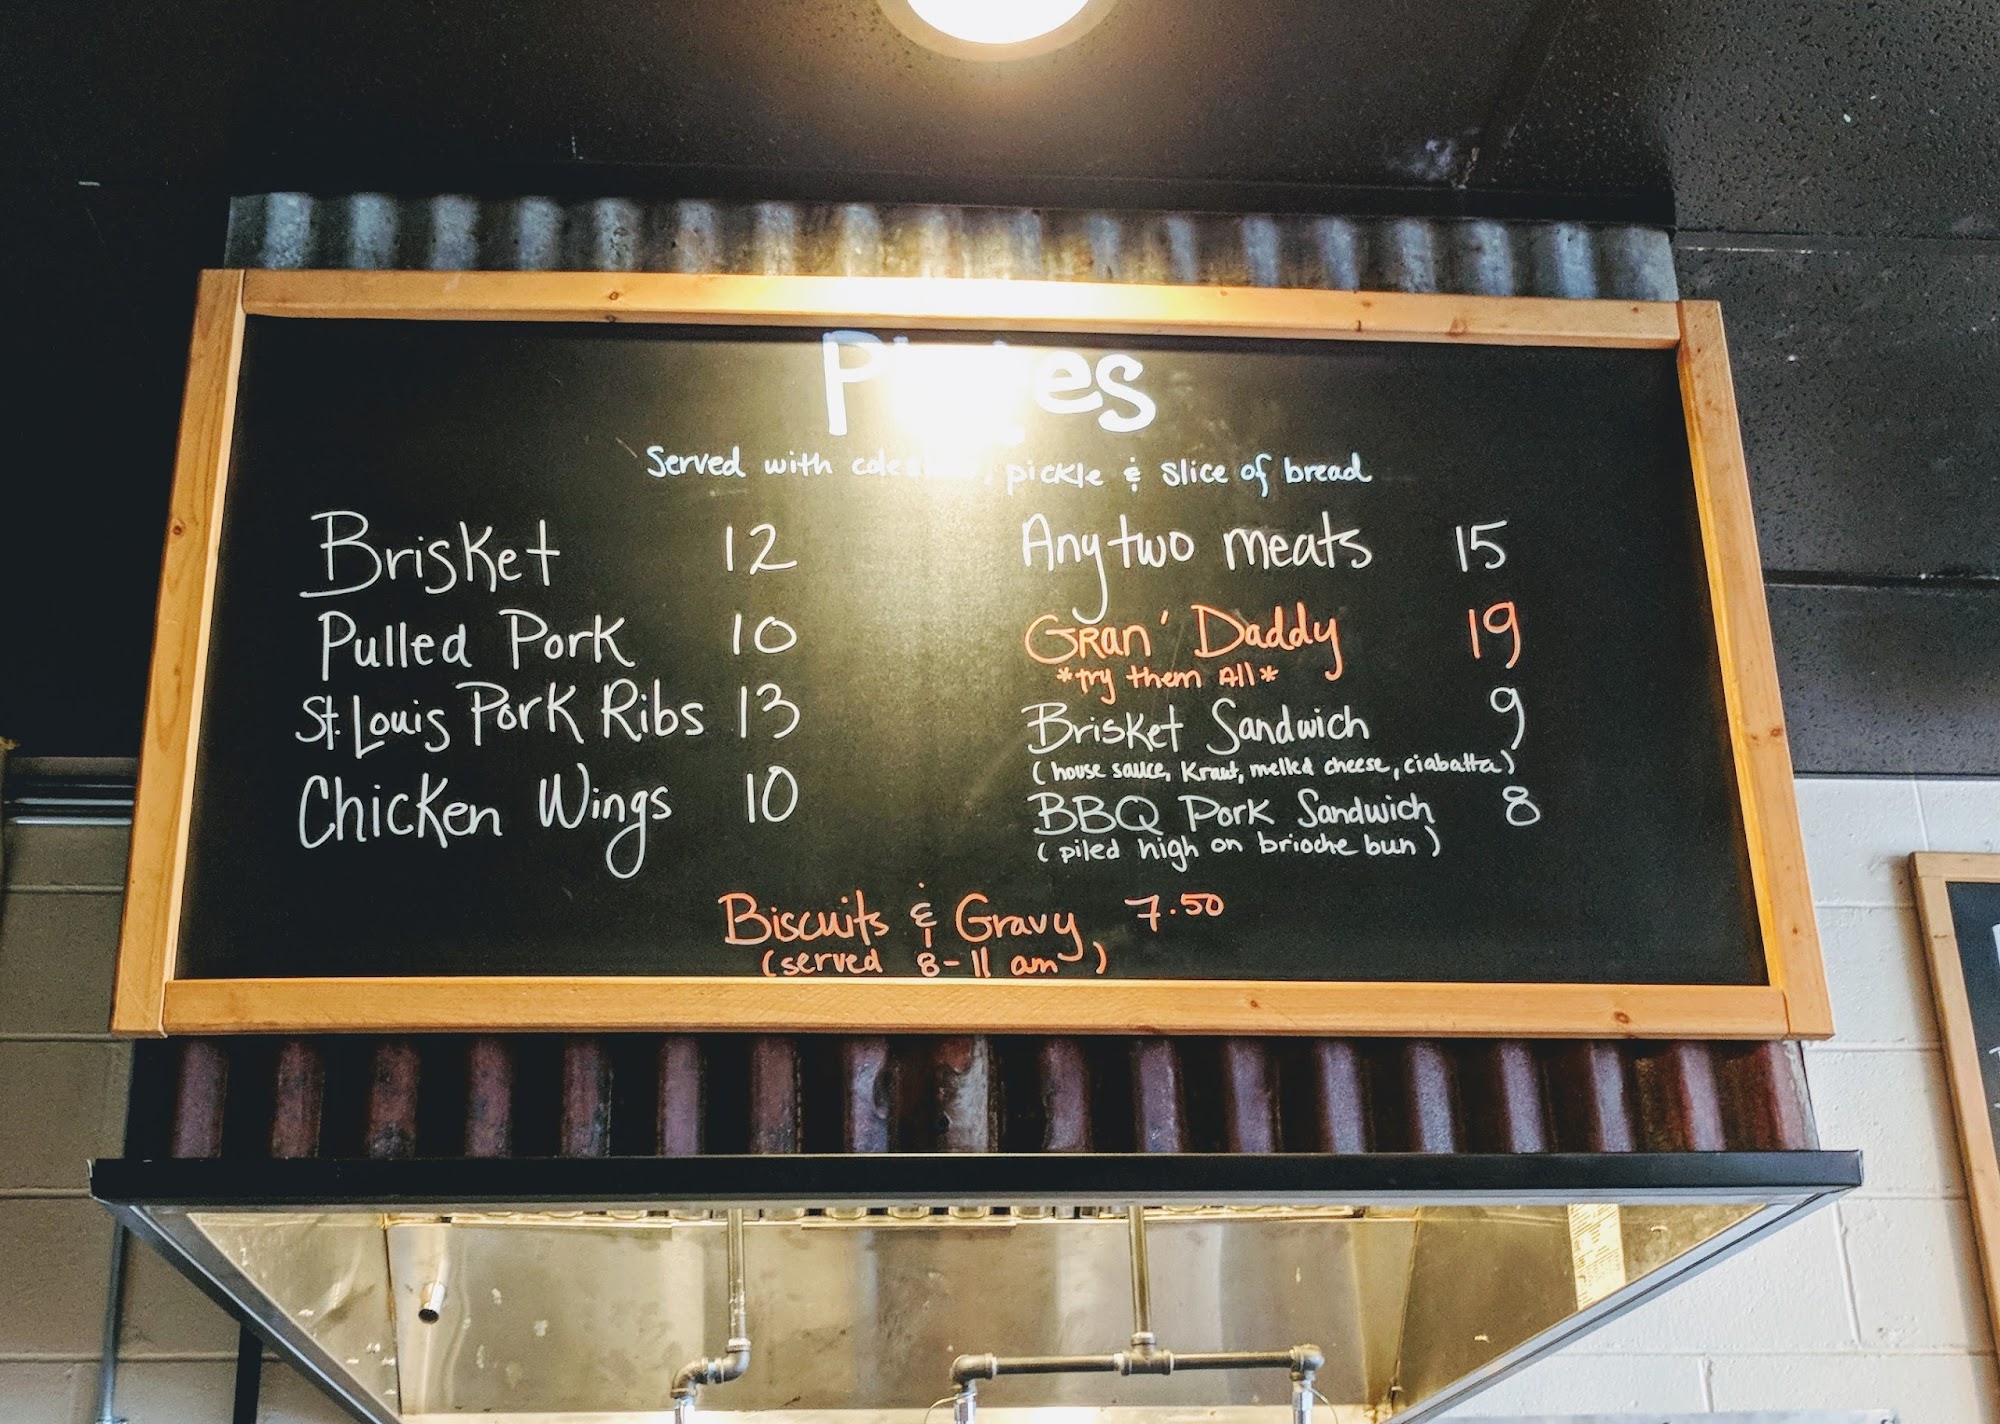 Served with pickle & slice of bread
Brisket 12
Pulled Pork 10
St. Louis Pork Ribs 13
Chicken Wings 10
Any two meats 15
Gran' Daddy 19
*try them All*
Brisket Sandwich 9
(house sauce, Kraut, melted cheese, ciabatta)
BBQ Pork Sandwich 8
(piled high on brioche bun)
Biscuits & Gravy 7.50
(served 8-11 am)